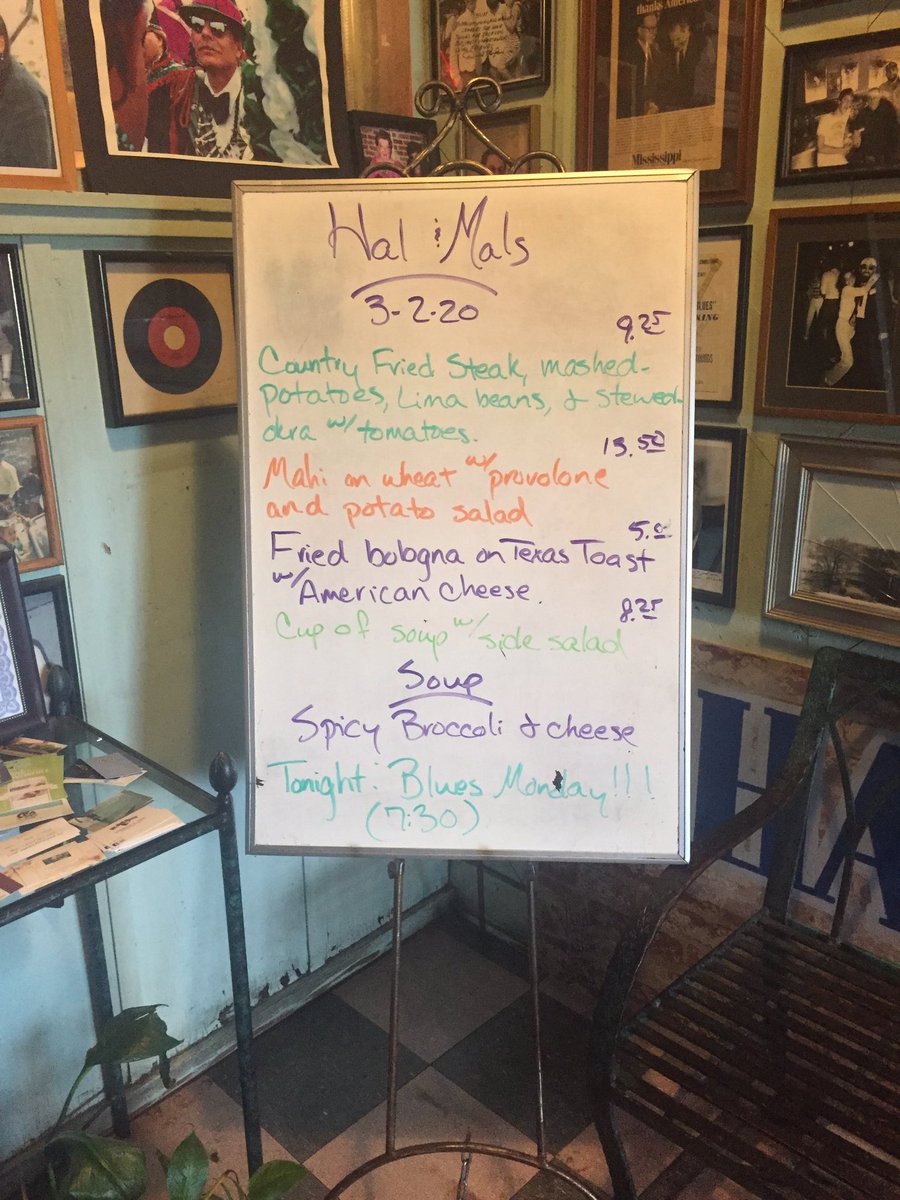 thanks America
Mississippi
Hal & Mals
3-2.20
9.25
Country Fried Steak, mashed-
potatoes, Lima beans, & stewed-
okra w/ tomatoes.
13.50
Mahi on wheat w/ provolone
and potato salad
5.00
Fried bologna on Texas Toast
w/ American cheese.
8.25
Cup of soup w/ side salad
Soup
Spicy Broccoli & cheese
Tonight: Blues Monday!!!
(7:30)